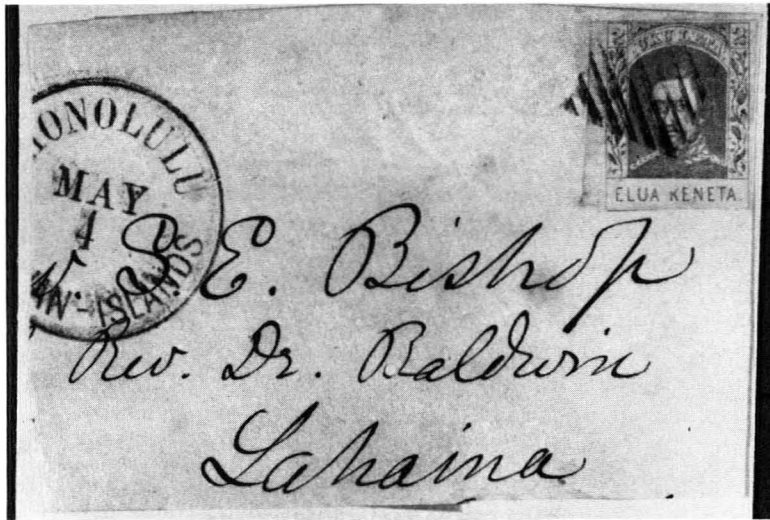 HONOLULU
MAY
4
ISLANDS
ELUA KENETA
S. E. Bishop
Rev. Dr. Baldwin
Lahaina